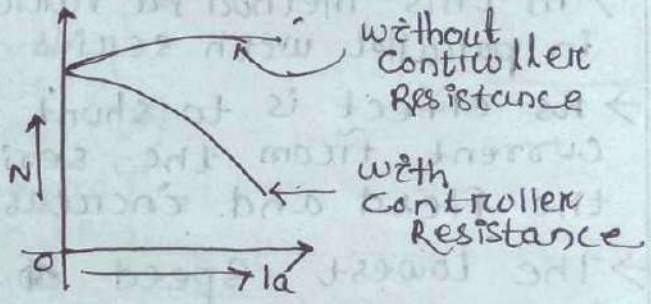 without
Controller
Resistance
N
with
Controller
Resistance
O
Ia